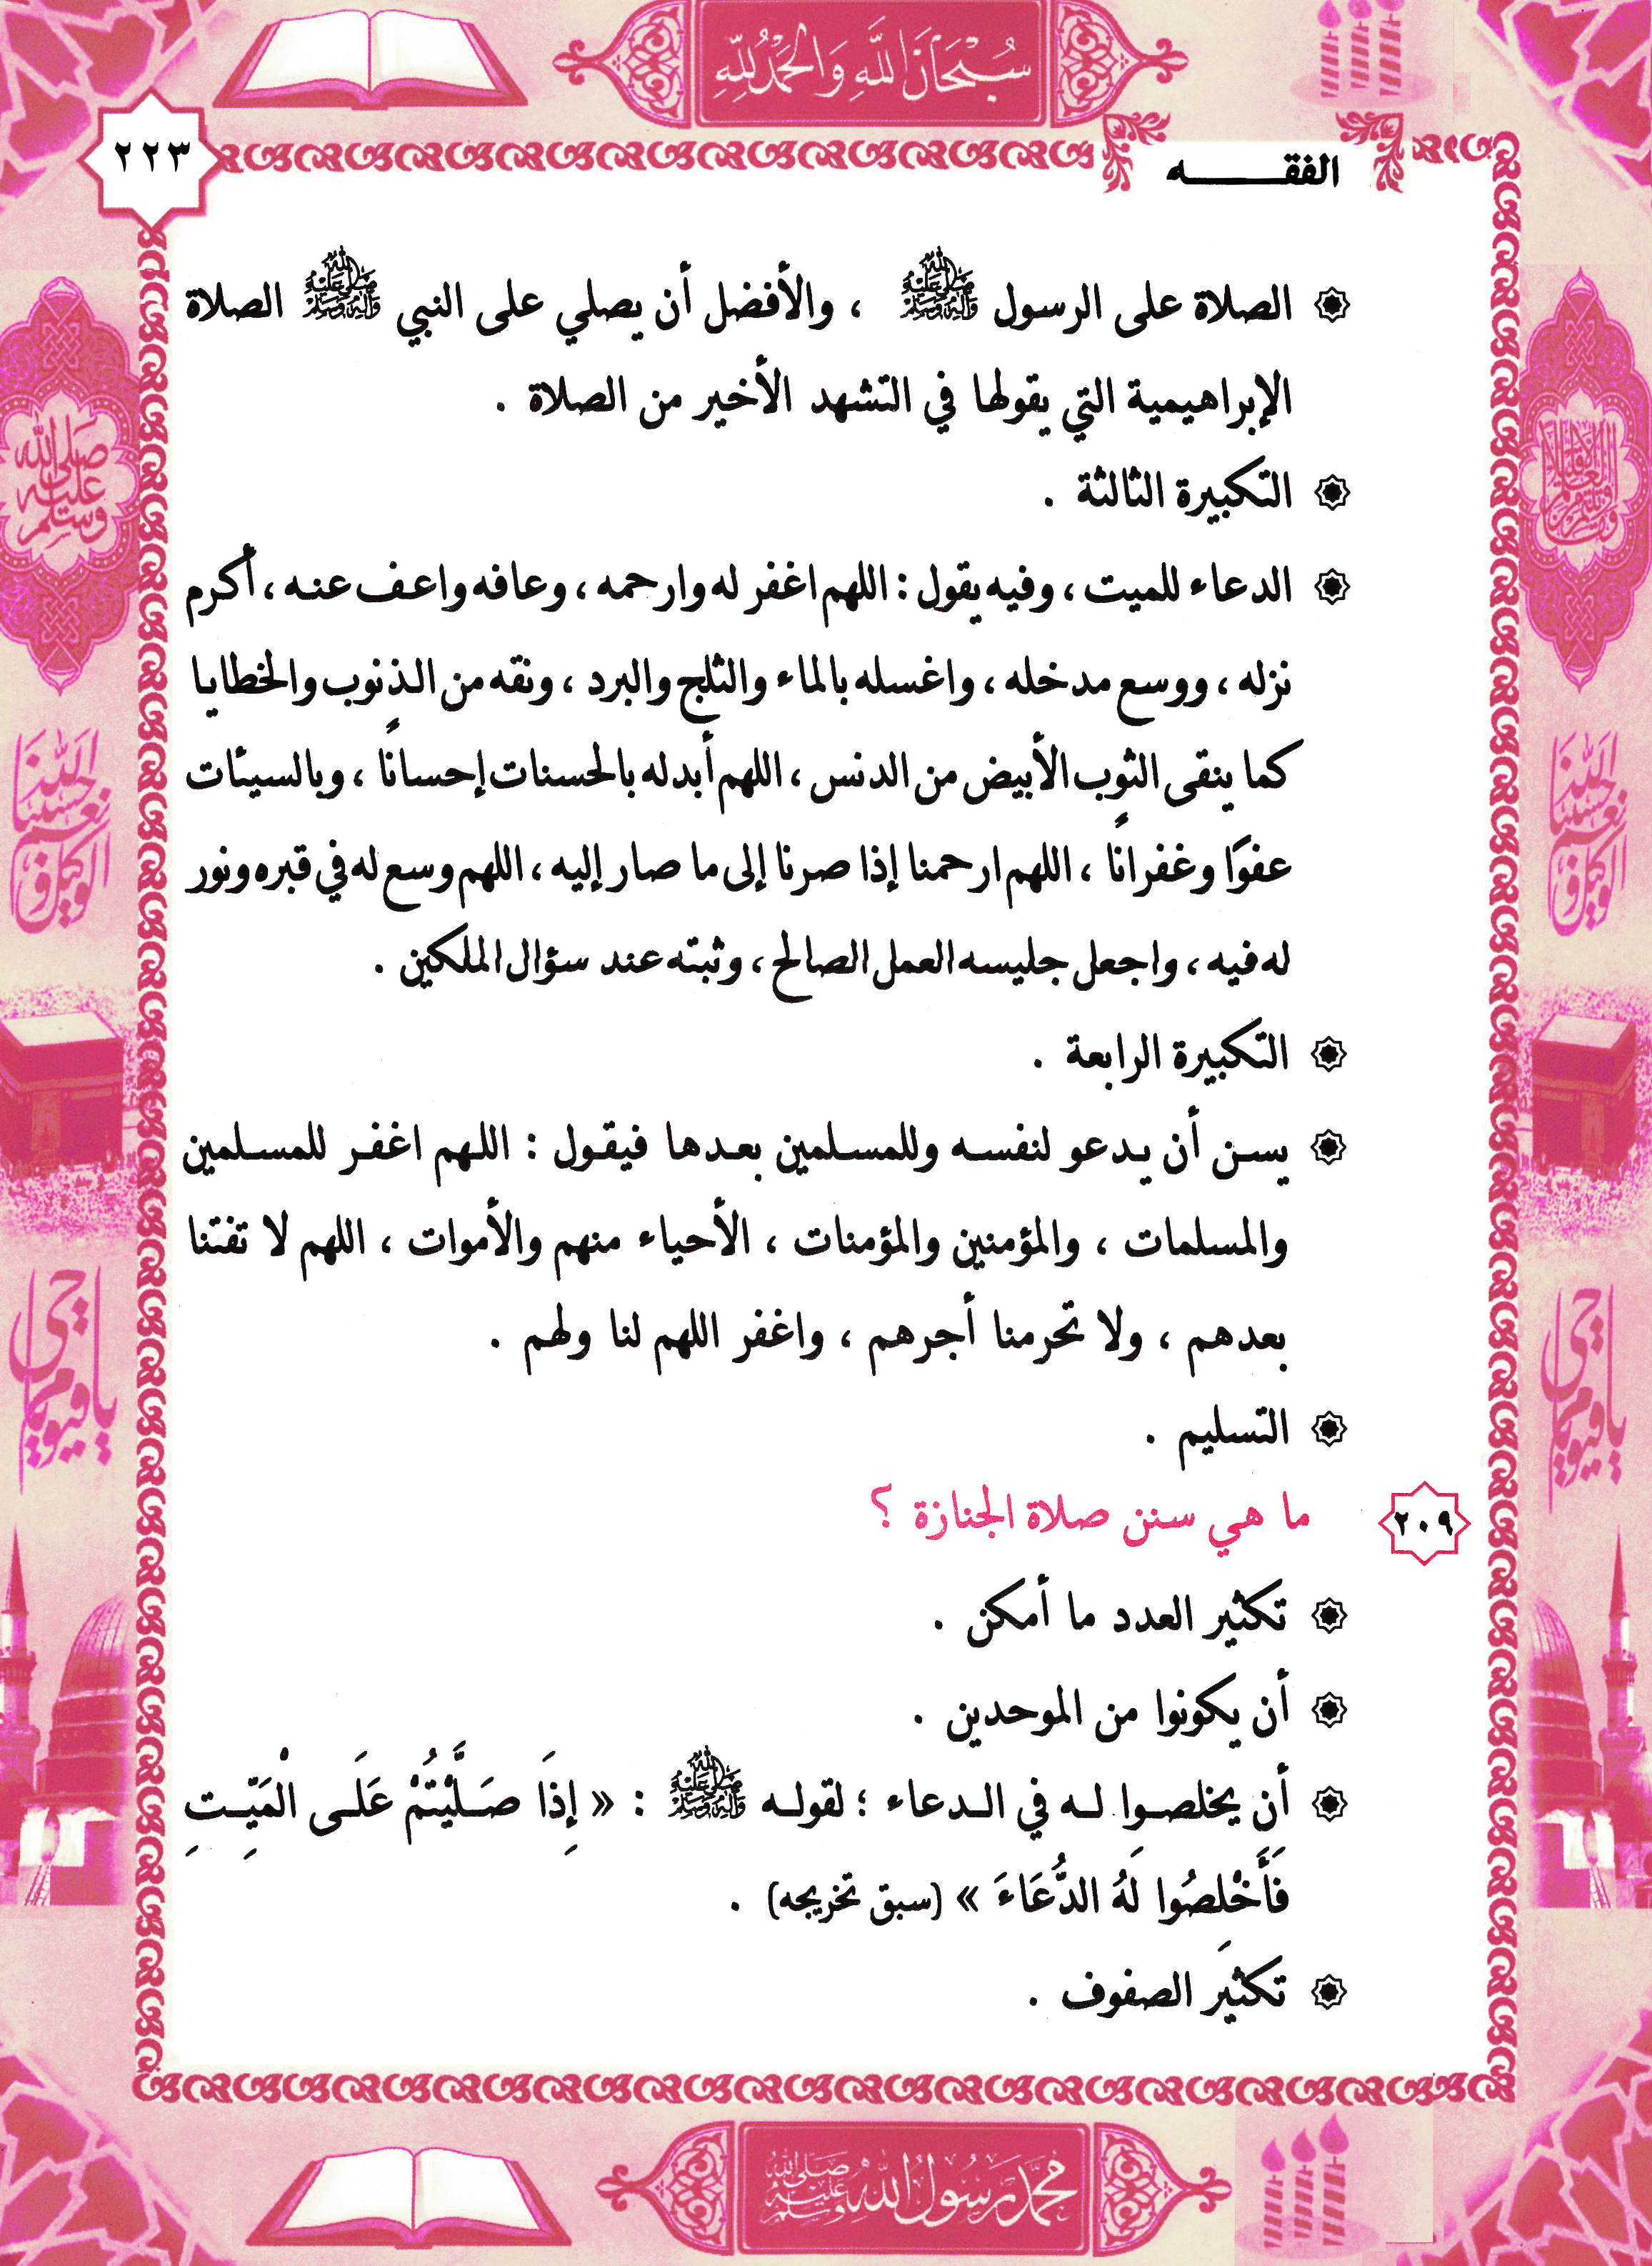 سُبْحَانَ اللَّهِ وَالْحَمْدُ لِلَّهِ
٢٢٣
الفقـــــه
الصلاة على الرسول ﷺ ، والأفضل أن يصلي على النبي ﷺ الصلاة
الإبراهيمية التي يقولها في التشهد الأخير من الصلاة .
التكبيرة الثالثة .
الدعاء للميت ، وفيه يقول : اللهم اغفر له وارحمه ، وعافه واعف عنه ، أكرم
نزله ، ووسع مدخله ، واغسله بالماء والثلج والبرد ، ونقه من الذنوب والخطايا
كما ينقى الثوب الأبيض من الدنس ، اللهم أبدله بالحسنات إحسانًا ، وبالسيئات
عفوًا وغفرانًا ، اللهم ارحمنا إذا صرنا إلى ما صار إليه ، اللهم وسع له في قبره ونور
له فيه ، واجعل جليسه العمل الصالح ، وثبته عند سؤال الملكين .
التكبيرة الرابعة .
يسن أن يدعو لنفسه وللمسلمين بعدها فيقول : اللهم اغفر للمسلمين
والمسلمات ، والمؤمنين والمؤمنات ، الأحياء منهم والأموات ، اللهم لا تفتنا
بعدهم ، ولا تحرمنا أجرهم ، واغفر اللهم لنا ولهم .
التسليم .
٢٠٩ ما هي سنن صلاة الجنازة ؟
تكثير العدد ما أمكن .
أن يكونوا من الموحدين .
أن يخلصوا له في الدعاء ؛ لقوله ﷺ : « إِذَا صَلَّيْتُمْ عَلَى الْمَيِّتِ
فَأَخْلِصُوا لَهُ الدُّعَاءَ » (سبق تخريجه) .
تكثير الصفوف .
صلى الله عليه وسلم
حسبنا الله ونعم الوكيل
يا حي يا قيوم
محمد رسول الله صلى الله عليه وسلم